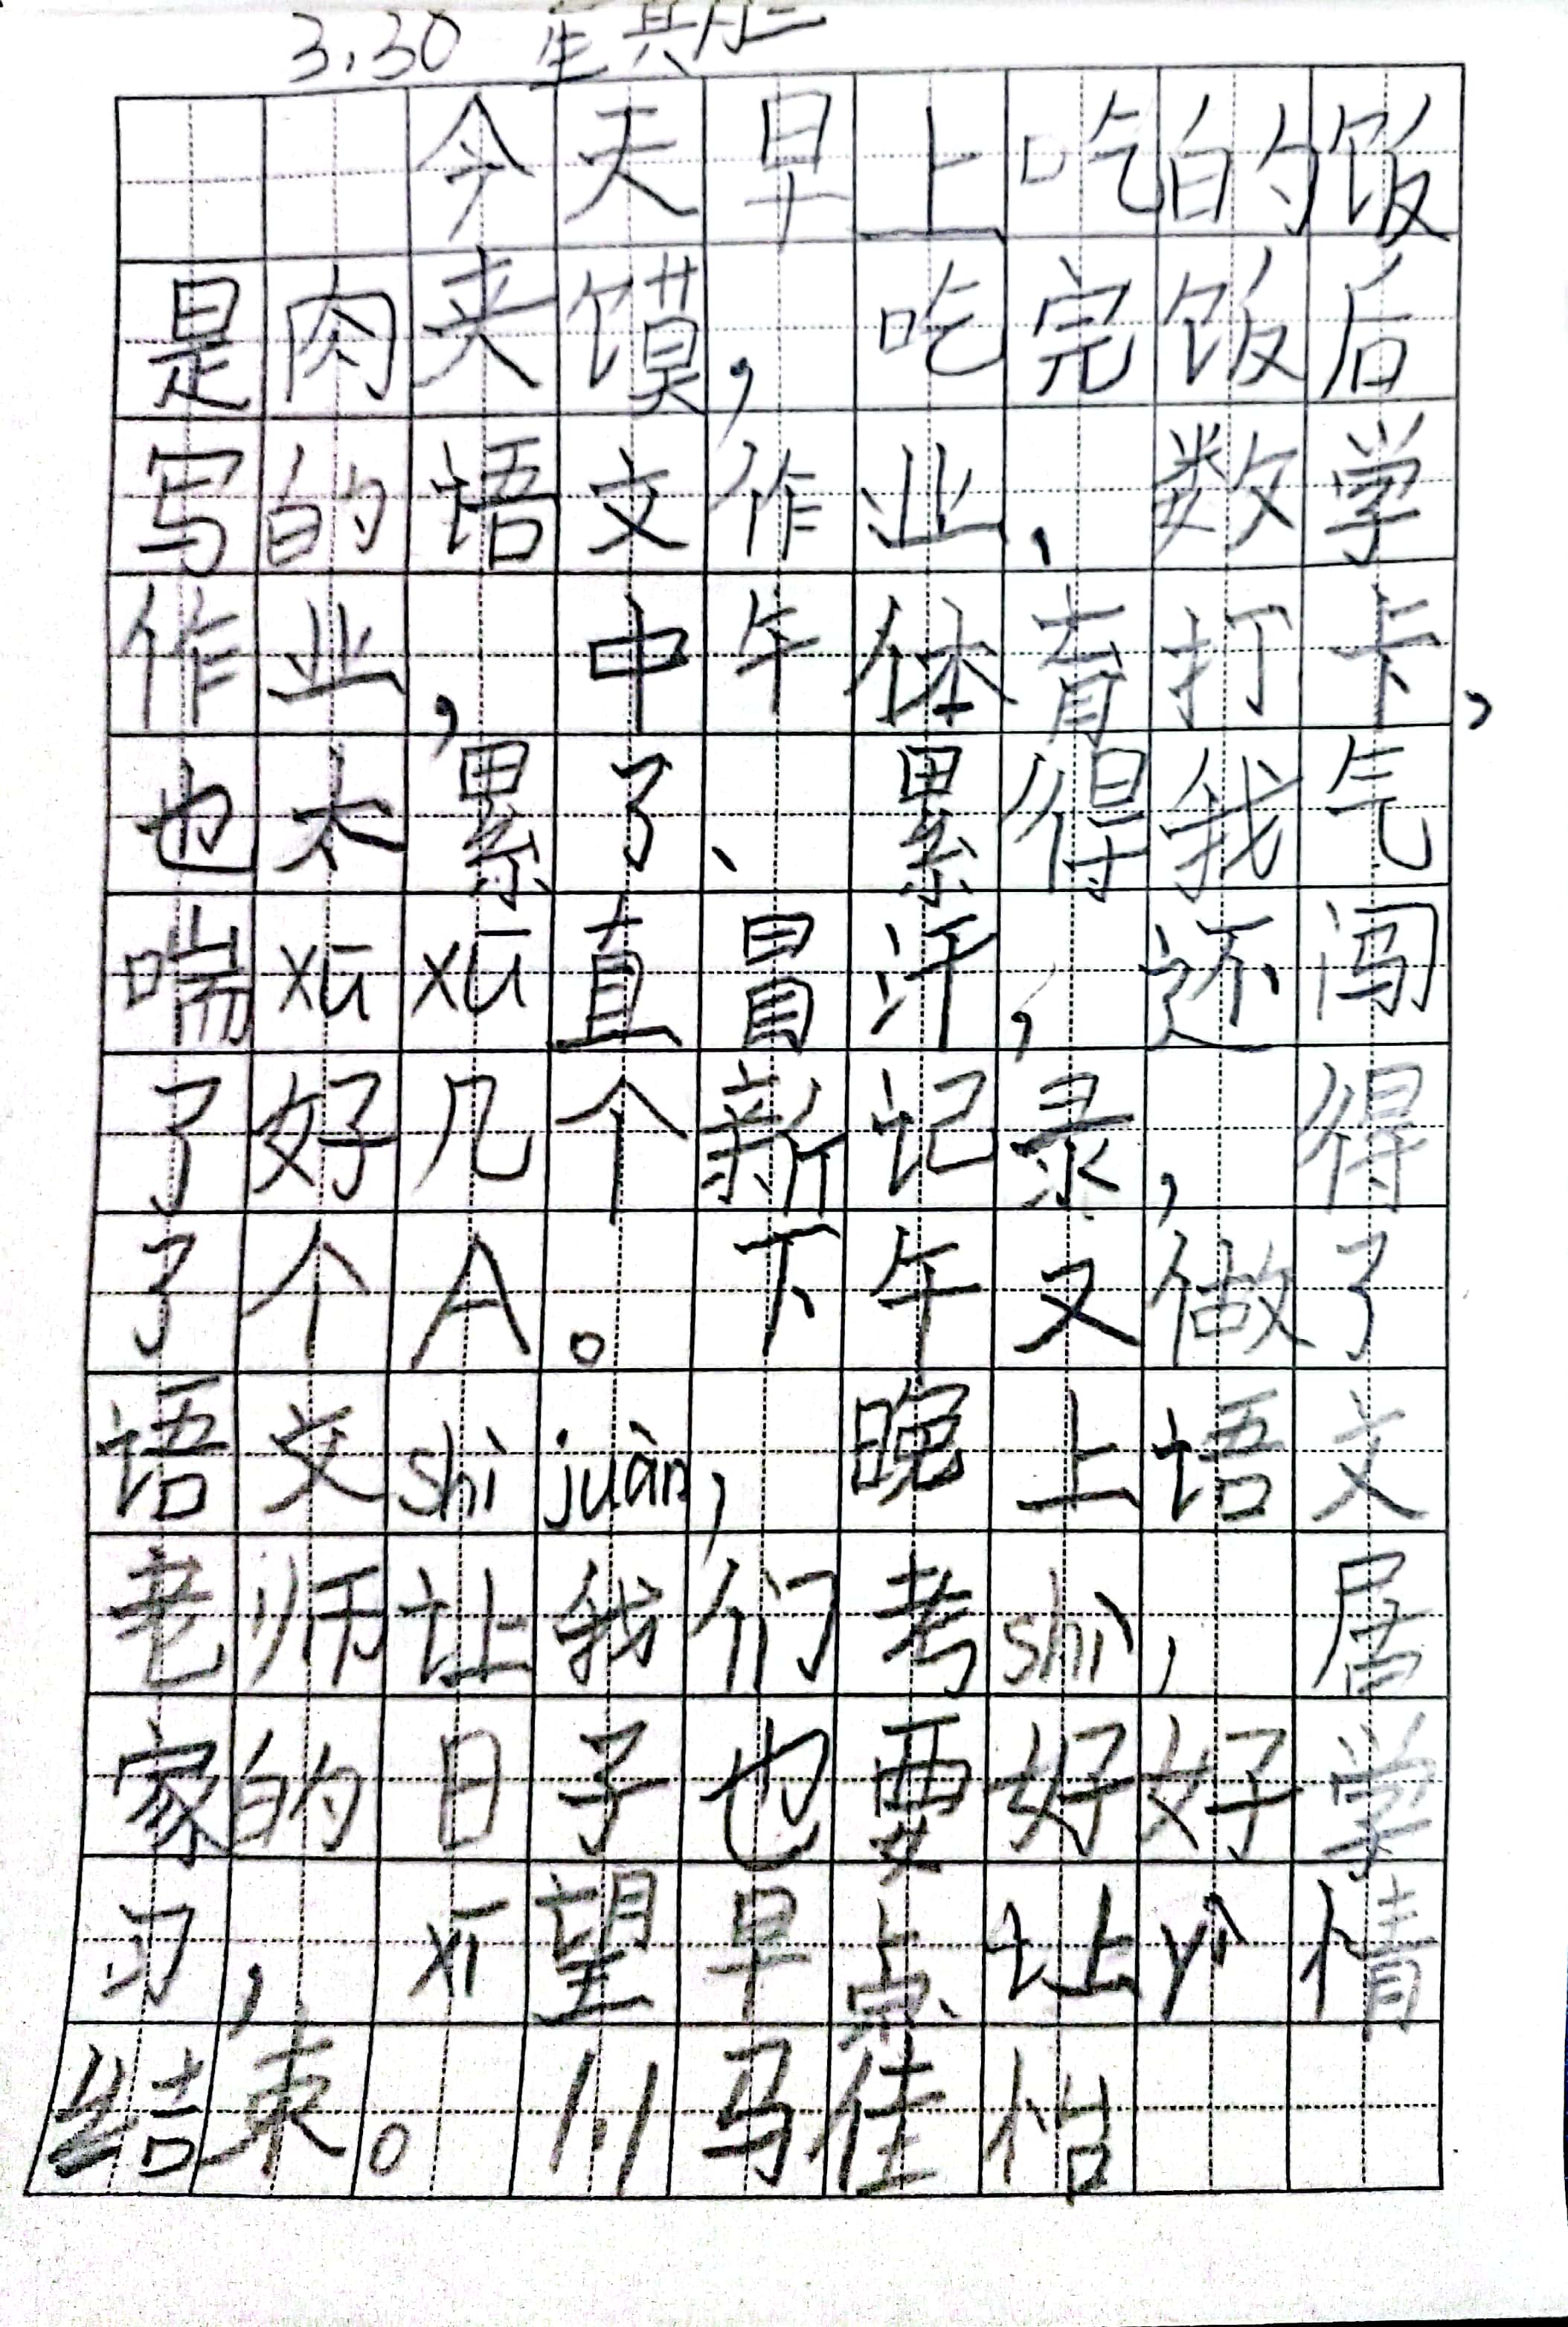 3.30 星期三
今天早上吃的饭
是肉夹馍,吃完饭后
写的语文作业、数学
作业,中午体育打卡,
也太累了、累得我气
喘xūxū直冒汗,还闯
了好几个新记录,得
了个A。下午又做了
语文shìjuàn,晚上语文
老师让我们考shì,居
家的日子也要好好学
习,xī望早点让yì情
结束。1.1马佳怡